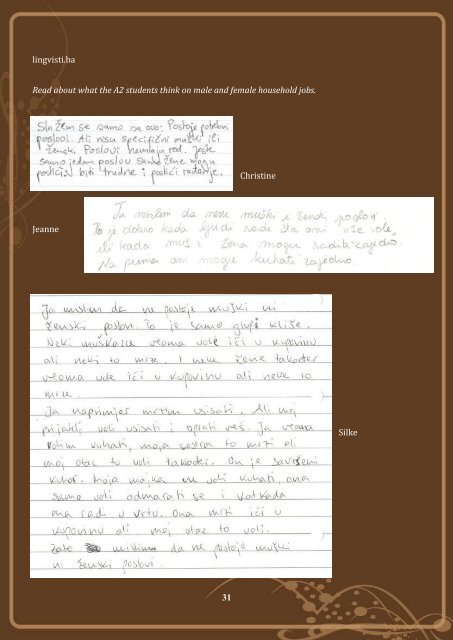 lingvisti.ba
Read about what the A2 students think on male and female household jobs.
Slažem se samo sa ovo: Postoje
poslovi. Ali nisu specifični muški ili
ženski Poslovi nemaju rod. Jede
samo jedan poslou samo žene mogu
biti trudne i postići rađanje.
Christine
Ja mislim da nema muški i ženski poslovi
To je dobro kada ljudi rade šta oni više vole,
ili kada muž i žena mogu raditi zajedno.
Na primer oni mogu kuhati zajedno.
Jeanne
Ja mislim da ne postoje muški ni
ženski poslovi. To je samo glupi kliše.
Neki muškarce veoma vole ići u kupovinu
ali neki to mrze. I neke žene također
veoma vole ići u kupovinu ali neke to
mrze.
Ja naprimjer mrzim usisati. Ali moj
prijatelj voli usisati i oprati veš. Ja veoma
volim kuhati, moja sestra to mrzi ali
moj otac to voli također. On je savršen
kuhar. Moja majka ne voli kuhati, ona
samo voli odmarati se i katkada
ona radi u vrtu. Ona mrzi ići u
kupovinu ali moj otac to voli.
Zato mislim da ne postoje muški
ni ženski poslovi.
Silke
31